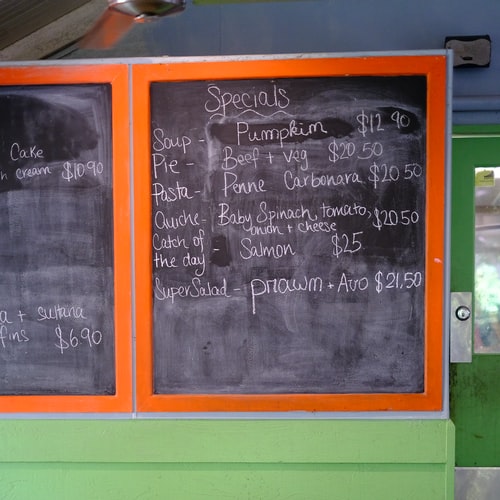 Cake
cream $10.90
+ sultana
$6.90
Specials
Soup - Pumpkin $12.90
Pie - Beef + veg $20.50
Pasta - Penne Carbonara $20.50
Quiche - Baby Spinach, tomato, onion + cheese $20.50
Catch of the day - Salmon $25
Super Salad - Prawn + Avo $21.50